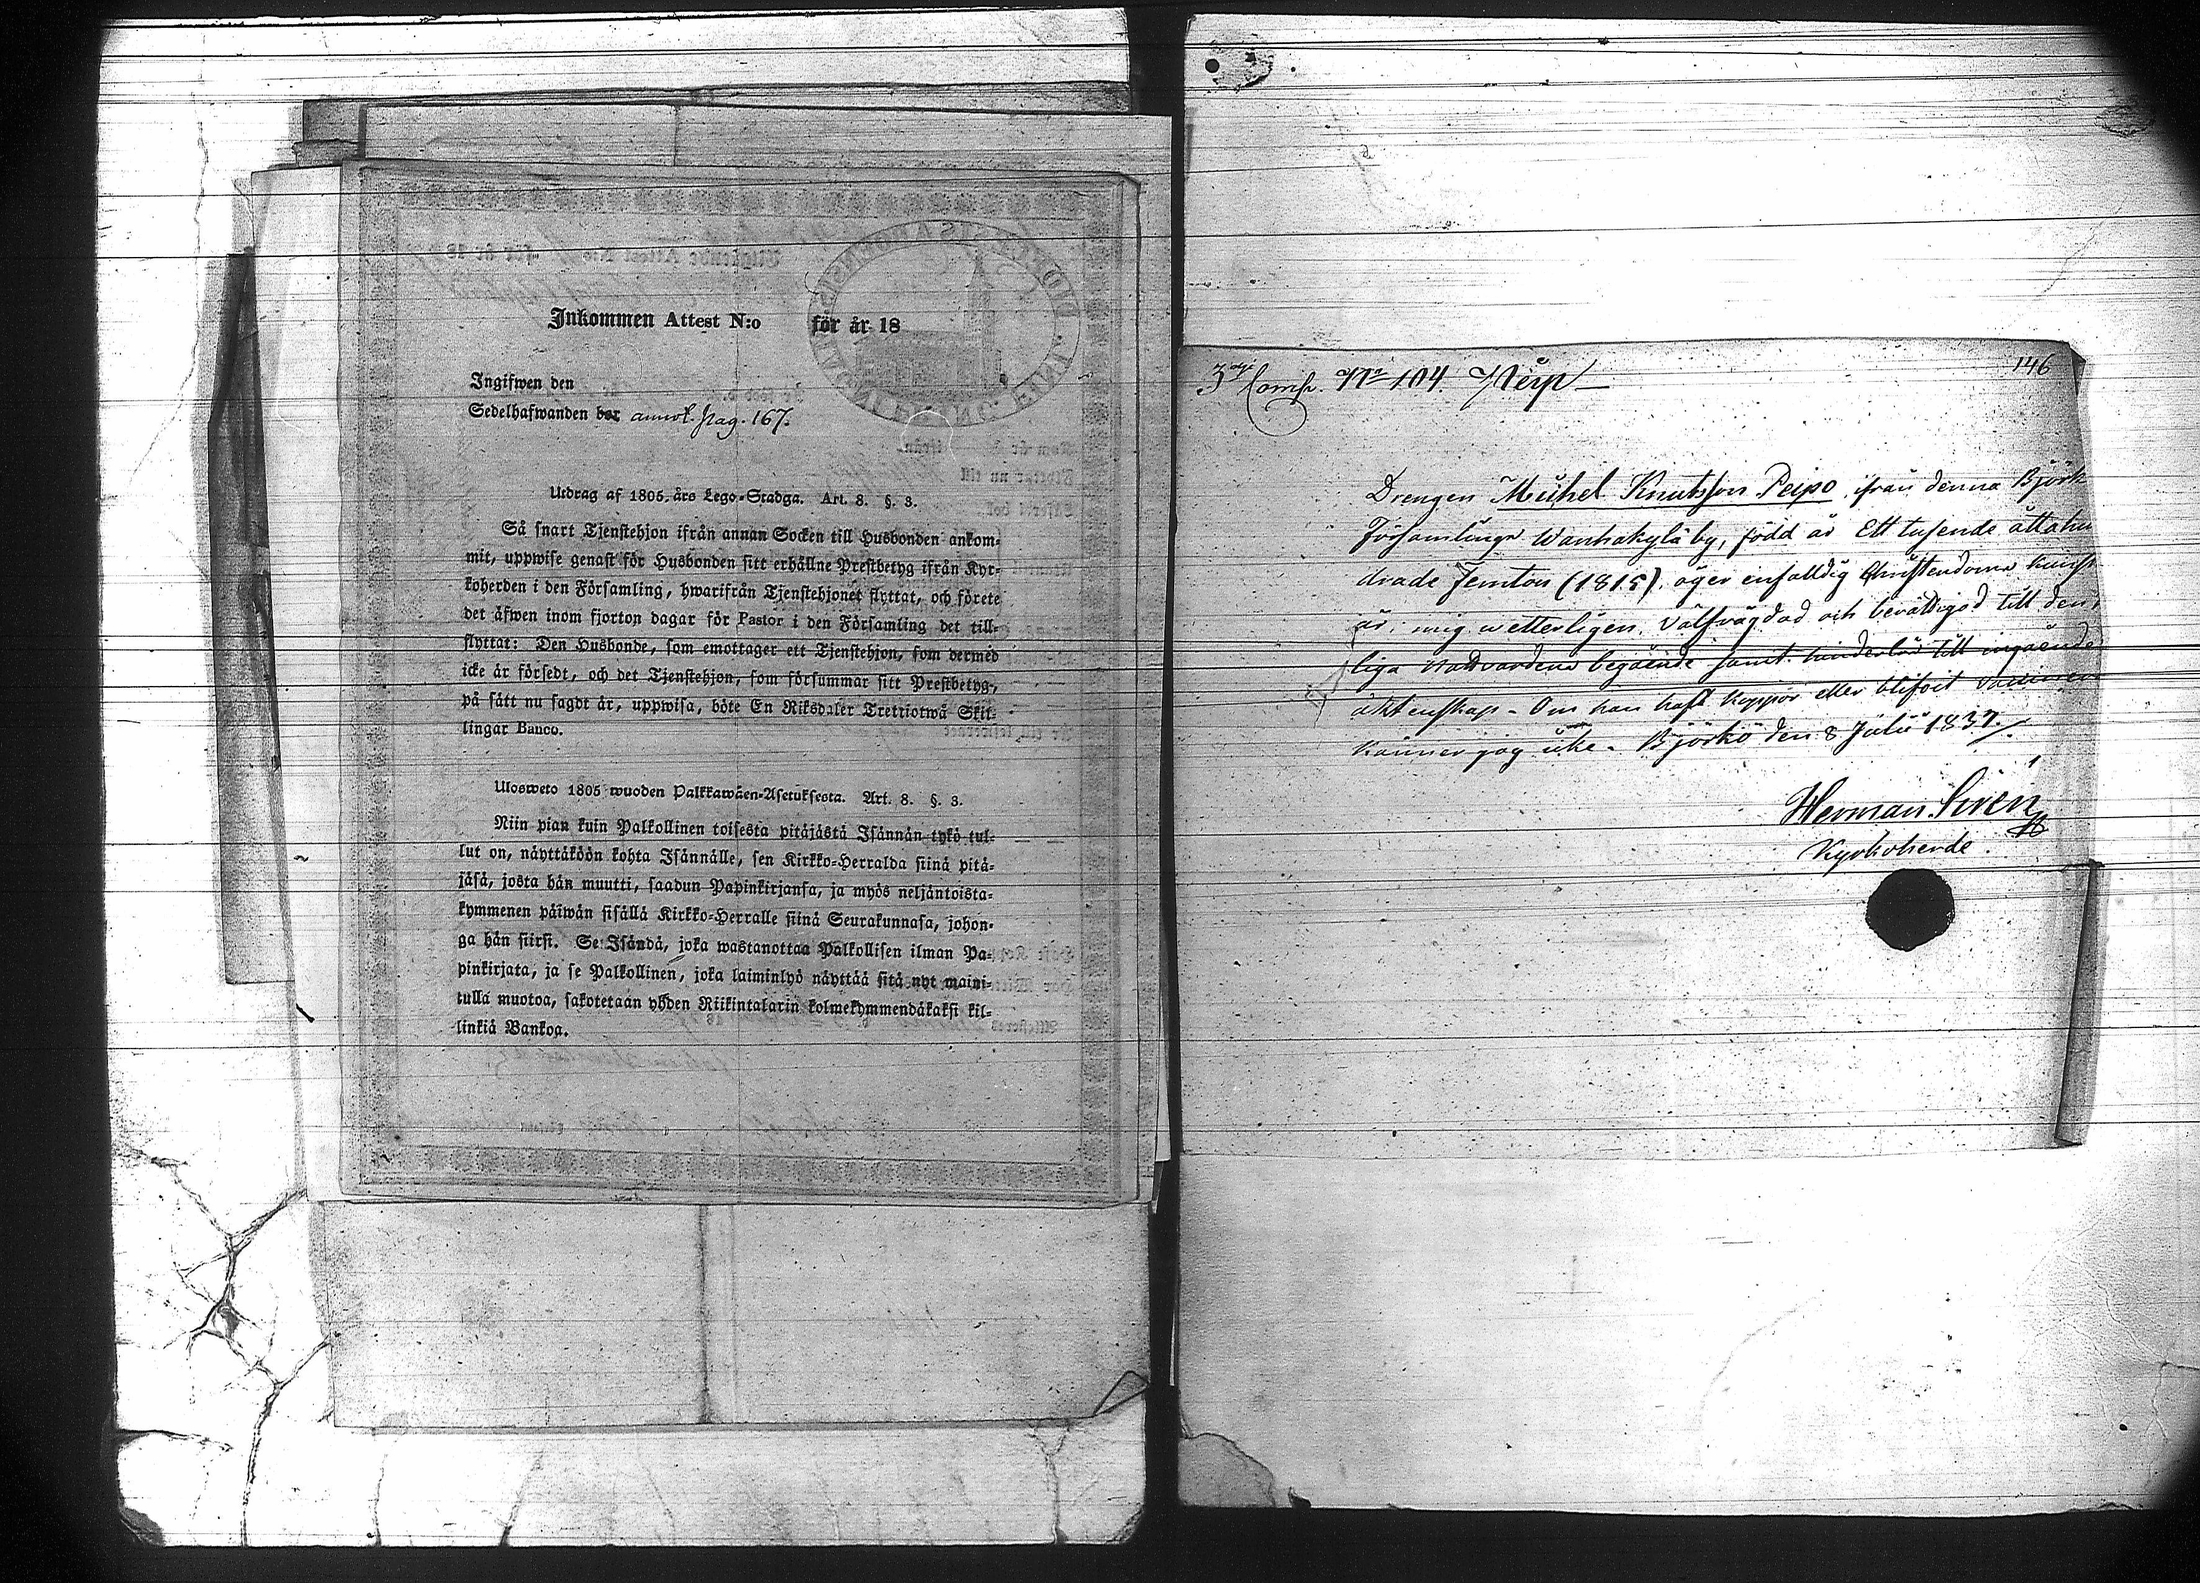 Inkommen Attest N:o för år 18
Ingifwen den
Sedelhafwanden bor annot. pag. 167.
Utdrag af 1805. års Lego-Stadga. Art. 8. §. 3.
Så snart Tjenstehjon ifrån annan Socken till Husbonden ankom-
mit, uppwise genast för Husbonden sitt erhållne Prestbetyg ifrån Kyr-
koherden i den Församling, hwarifrån Tjenstehjonet flyttat, och förete
det äfwen inom fjorton dagar för Pastor i den Församling det till-
flyttat: Den Husbonde, som emottager ett Tjenstehjon, som dermed
icke är försedt, och det Tjenstehjon, som försummar sitt Prestbetyg,
på sätt nu sagdt är, uppwisa, böte En Riksdaler Tretriotwå Skil-
lingar Banco.
Ulosweto 1805 wuoden Palkkawäen-Asetuksesta. Art. 8. §. 3.
Niin pian kuin Palkollinen toisesta pitäjästä Isännän tykö tul-
lut on, näyttäköön kohta Isännälle, sen Kirkko-Herralda siinä pitä-
jäsä, josta hän muutti, saadun Papinkirjansa, ja myös neljäntoista-
kymmenen päiwän sisällä Kirkko-Herralle siinä Seurakunnasa, johon-
ga hän siirsi. Se Isändä, joka wastanottaa Palkollisen ilman Pa-
pinkirjata, ja se Palkollinen, joka laiminlyö näyttää sitä nyt maini-
tulla muotoa, sakotetaan yhden Riikintalarin kolmekymmendäkaksi kil-
linkiä Bankoa.
146
3dje Comp. No 104.
Drengen Michel Knutsson Peipo, ifrån denna Björk
Församlings Wanhakylä by, född år Ett tusende åttahun
drade femton (1815), äger enfalldig Christendoms kunsk
är, mig wetterligen, välfrägdad och berättigad till den
liga Nattvardens begående samt hinderlös till ingående
äktenskap - Om han haft koppor eller blifvit vaccinera
känner jag icke. Björkö den 8 Julii 1837.
Herman Sirén
Kyrkoherde.